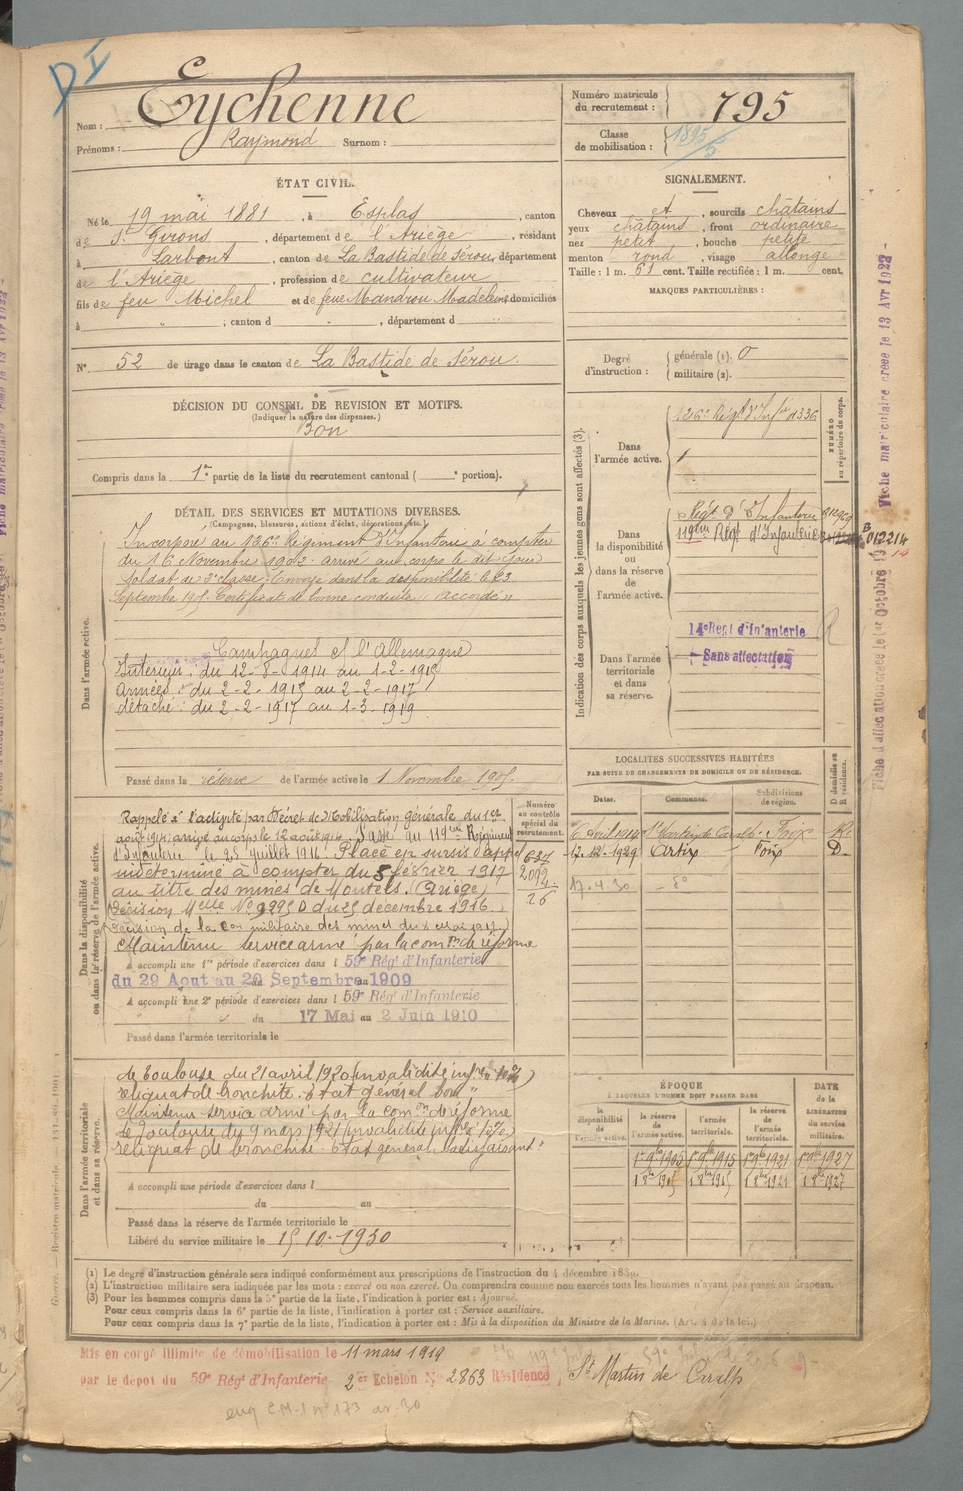 D I
Eychenne
Nom :
Prénoms : Raymond Surnom :
Numéro matricule
du recrutement : 795
Classe
de mobilisation : 1895/5
ÉTAT CIVIL.
Né le 19 mai 1881, à Esplas, canton
de St Girons, département de l'Ariège, résidant
à Larbont, canton de La Bastide de Sérou, département
de l'Ariège, profession de cultivateur
fils de feu Michel et de feue Mandrou Madeleine domiciliés
à " ; canton d - , département d "
N° 52 de tirage dans le canton de La Bastide de Sérou.
SIGNALEMENT.
Cheveux et , sourcils châtains
yeux châtains , front ordinaire
nez petit , bouche petite
menton rond , visage allongé
Taille : 1 m. 51 cent. Taille rectifiée : 1 m. cent.
MARQUES PARTICULIÈRES :
Degré
d'instruction :
générale (1). 0
militaire (2).
DÉCISION DU CONSEIL DE REVISION ET MOTIFS.
(Indiquer la nature des dispenses.)
Bon
Compris dans la 1re partie de la liste du recrutement cantonal ( e portion).
DÉTAIL DES SERVICES ET MUTATIONS DIVERSES.
(Campagnes, blessures, actions d'éclat, décorations, etc.)
Dans l'armée active.
Incorporé au 126e Régiment d'Infanterie à compter
du 16 Novembre 1902 arrivé au corps le dit jour
Soldat de 2e classe. Envoyé dans la disponibilité le 23
Septembre 1905. Certificat de bonne conduite « accordé »
Campagnes et l'Allemagne
Intérieur : du 12-8-1914 au 1-2-1915
Armées : du 2-2-1915 au 2-2-1917
détaché : du 2-2-1917 au 1-3-1919
Passé dans la réserve de l'armée active le 1 Novembre 1905.
Indication des corps auxquels les jeunes gens sont affectés (3).
Dans
l'armée active.
126e Régt d'Infie 1336
NUMÉRO
au répertoire du corps.
Dans
la disponibilité
ou
dans la réserve
de
l'armée active.
Régt d'Infanterie
119ème Régt d'Infanterie
012214
Dans l'armée
territoriale
et dans
sa réserve.
14e Regt d'Infanterie
Sans affectation
R
LOCALITÉS SUCCESSIVES HABITÉES
PAR SUITE DE CHANGEMENTS DE DOMICILE OU DE RÉSIDENCE.
Dates. Communes. Subdivisions
de région.
D domicile ou
R résidence.
6 avril 1914 St Martin de Caralp Foix R.
12-12-1929 Artix Foix D.
17.4.30 - do
Dans la disponibilité
ou dans la réserve de l'armée active.
Numéro
au contrôle
spécial du
recrutement.
Rappelé à l'activité par Décret de Mobilisation Générale du 1er
août 1914, arrivé au corps le 12 août 1914. Passé au 119ème Régiment
d'Infanterie le 25 juillet 1916. Placé en sursis d'appel
indéterminé à compter du 5 février 1917
au titre des mines de Montels. (Ariège)
Maintenu service armé par la comon de réforme
A accompli une 1re période d'exercices dans l 59e Régt d'Infanterie
du 29 Aout au 20 Septembre 1909
A accompli une 2e période d'exercices dans l 59e Régt d'Infanterie
du 17 Mai au 2 Juin 1910
Passé dans l'armée territoriale le
Dans l'armée territoriale
et dans sa réserve.
de Toulouse du 21 avril 1920 (invalidité infre à 10%)
reliquat de bronchite. État général bon"
Maintenu service armé par la comon de réforme
de Toulouse du 9 mars 1921 (invalidité infre à 10%)
reliquat de bronchite. État général satisfaisant"
A accompli une période d'exercices dans l
du au
Passé dans la réserve de l'armée territoriale le
Libéré du service militaire le 15.10.1930
ÉPOQUE
À LAQUELLE L'HOMME DOIT PASSER DANS
DATE
de la
LIBÉRATION
du service
militaire.
la
disponibilité
de
l'armée active.
la réserve
de
l'armée active.
l'armée
territoriale.
la réserve
de
l'armée
territoriale.
1er 9bre 1905 1er 9bre 1915 1er 9bre 1921 1er 9bre 1927
1 8bre 1915 1 8bre 1921 1 8bre 1927
(1) Le degré d'instruction générale sera indiqué conformément aux prescriptions de l'instruction du 4 décembre 1889.
(2) L'instruction militaire sera indiquée par les mots : exercé ou non exercé. On comprendra comme non exercés tous les hommes n'ayant pas passé au drapeau.
(3) Pour les hommes compris dans la 5e partie de la liste, l'indication à porter est : Ajourné.
Pour ceux compris dans la 6e partie de la liste, l'indication à porter est : Service auxiliaire.
Pour ceux compris dans la 7e partie de la liste, l'indication à porter est : Mis à la disposition du Ministre de la Marine. (Art. 4 de la loi.)
Mis en congé illimité de démobilisation le 11 mars 1919
par le dépot du 59e Régt d'Infanterie 2er Echelon N° 2863 Résidence St Martin de Caralp
Fiche matriculaire créée le 13 Avr 1922